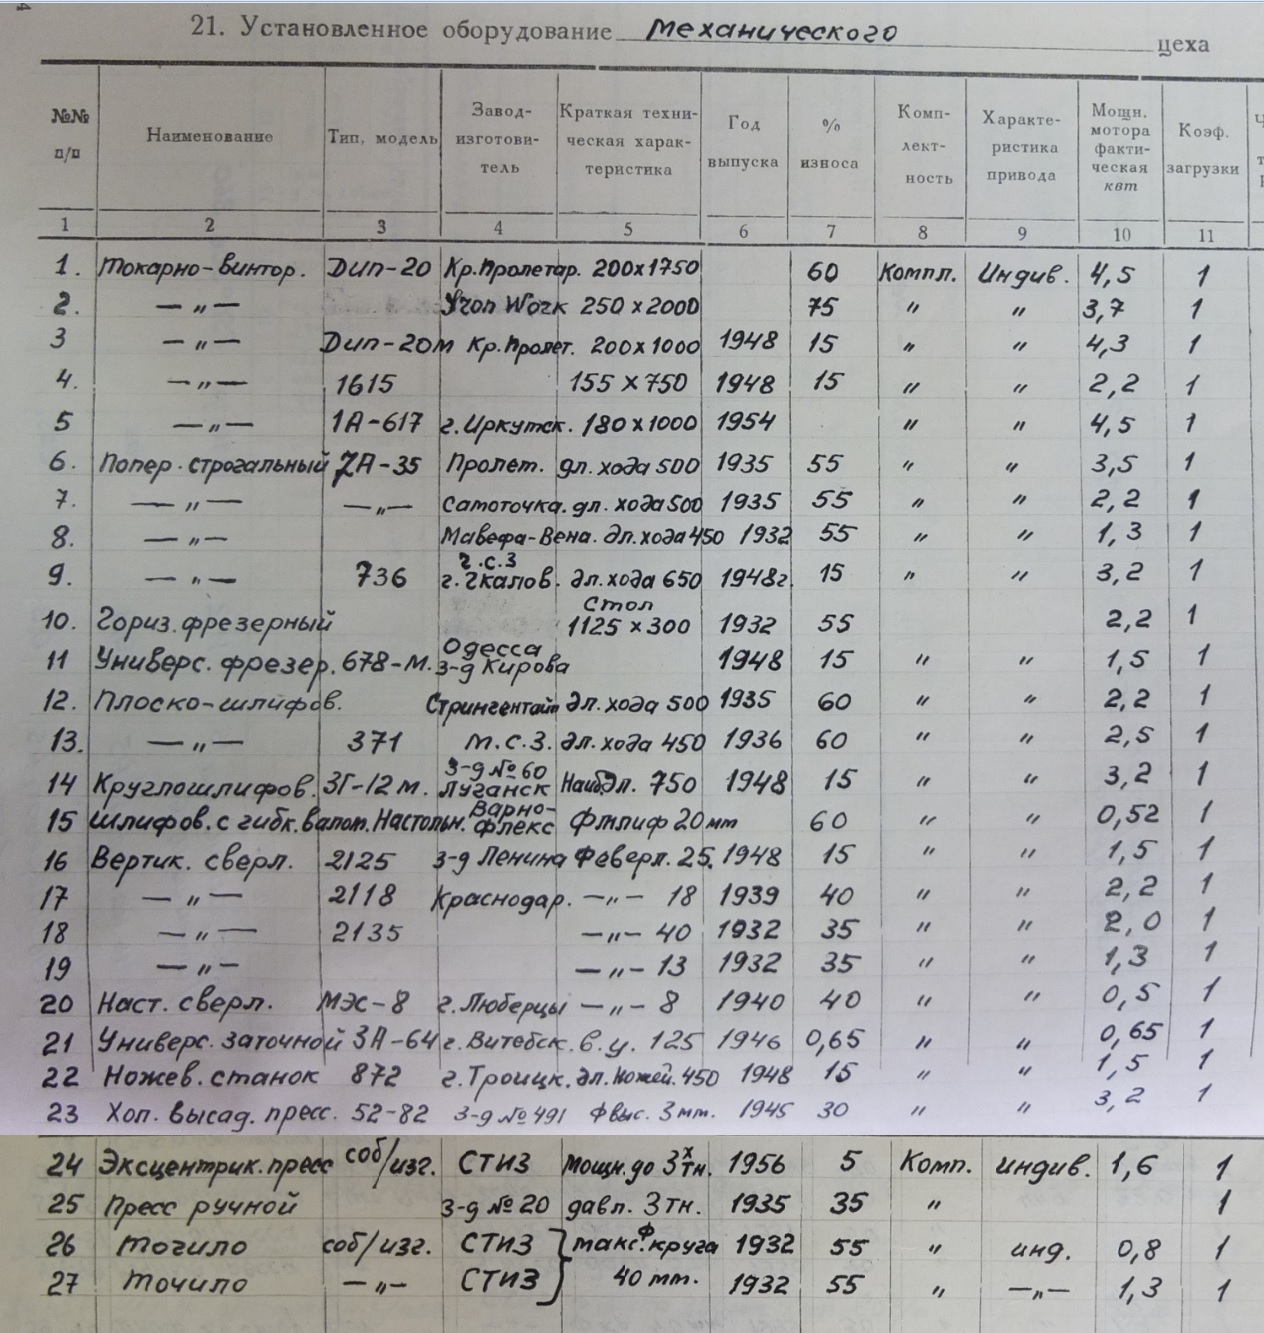 21. Установленное оборудование механического цеха
№№ п/п Наименование Тип, модель Завод-изготовитель Краткая техническая характеристика Год выпуска % износа Комплектность Характеристика привода Мощн. мотора фактическая квт Коэф. загрузки
1 2 3 4 5 6 7 8 9 10 11
1. Токарно-винтор. Дип-20 Кр.Пролетар. 200х1750 60 Компл. Индив. 4,5 1
2. —„— Yron Work 250 х 2000 75 „ „ 3,7 1
3 —„— Дип-20м Кр.Пролет. 200х1000 1948 15 „ „ 4,3 1
4. —„— 1615 155 х 750 1948 15 „ „ 2,2 1
5 —„— 1А-617 г.Иркутск. 180х1000 1954 „ „ 4,5 1
6. Попер.строгальный 7А-35 Пролет. дл.хода 500 1935 55 „ „ 3,5 1
7. —„— —„— Самоточка. дл.хода 500 1935 55 „ „ 2,2 1
8. —„— Мавефа-Вена. дл.хода 450 1932 55 „ „ 1,3 1
9. —„— 736 г.Чкалов. Ч.С.З дл.хода 650 1948г. 15 „ „ 3,2 1
10. Гориз.фрезерный Стол 1125 х 300 1932 55 2,2 1
11 Универс.фрезер. 678-М. Одесса з-д Кирова 1948 15 „ „ 1,5 1
12. Плоско-шлифов. Стрингентайт дл.хода 500 1935 60 „ „ 2,2 1
13. —„— 371 М.С.З. дл.хода 450 1936 60 „ „ 2,5 1
14 Круглошлифов. 3Г-12м. З-д №60 Луганск Наиб.дл. 750 1948 15 „ „ 3,2 1
15 Шлифов.с гибк.валом.Настольн. Варно-флекс Фтлиф 20мт 60 „ „ 0,52 1
16 Вертик. сверл. 2125 з-д Ленина Фсверл. 25. 1948 15 „ „ 1,5 1
17 —„— 2118 Краснодар. —„— 18 1939 40 „ „ 2,2 1
18 —„— 2135 —„— 40 1932 35 „ „ 2,0 1
19 —„— —„— 13 1932 35 „ „ 1,3 1
20 Наст. сверл. МЭС-8 г.Люберцы —„— 8 1940 40 „ „ 0,5 1
21 Универс. заточной 3А-64 г.Витебск. в.ц. 125 1946 0,65 „ „ 0,65 1
22 Ножев.станок 872 г.Троицк. дл.ножей.450 1948 15 „ „ 1,5 1
23 Хол. высад. пресс. 52-82 З-д №491 Фвыс. 3мт. 1945 30 „ „ 3,2 1
24 Эксцентрик.пресс соб/изг. СТИЗ Мощн.до 3х тн. 1956 5 Комп. индив. 1,6 1
25 Пресс ручной з-д № 20 давл. 3тн. 1935 35 „ 1
26 Точило соб/изг. СТИЗ макс.ф круга 1932 55 „ инд. 0,8 1
27 Точило —„— СТИЗ 40 мт. 1932 55 „ —„— 1,3 1